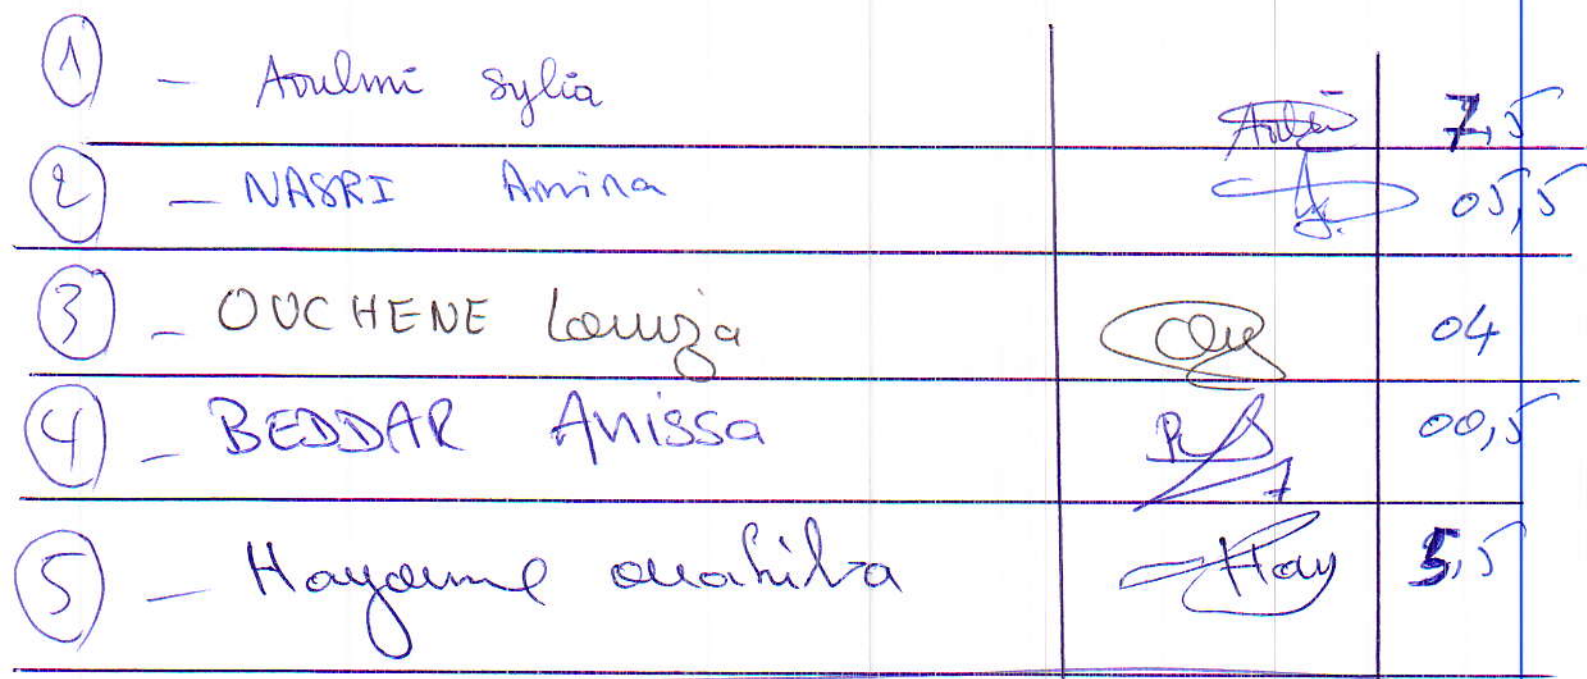 ① - Aoulmi Sylia 7,5
② - NASRI Amina 05,5
③ - OUCHENE Louiza 04
④ - BEDDAR Anissa 00,5
⑤ - ouahiba Hay 5,5